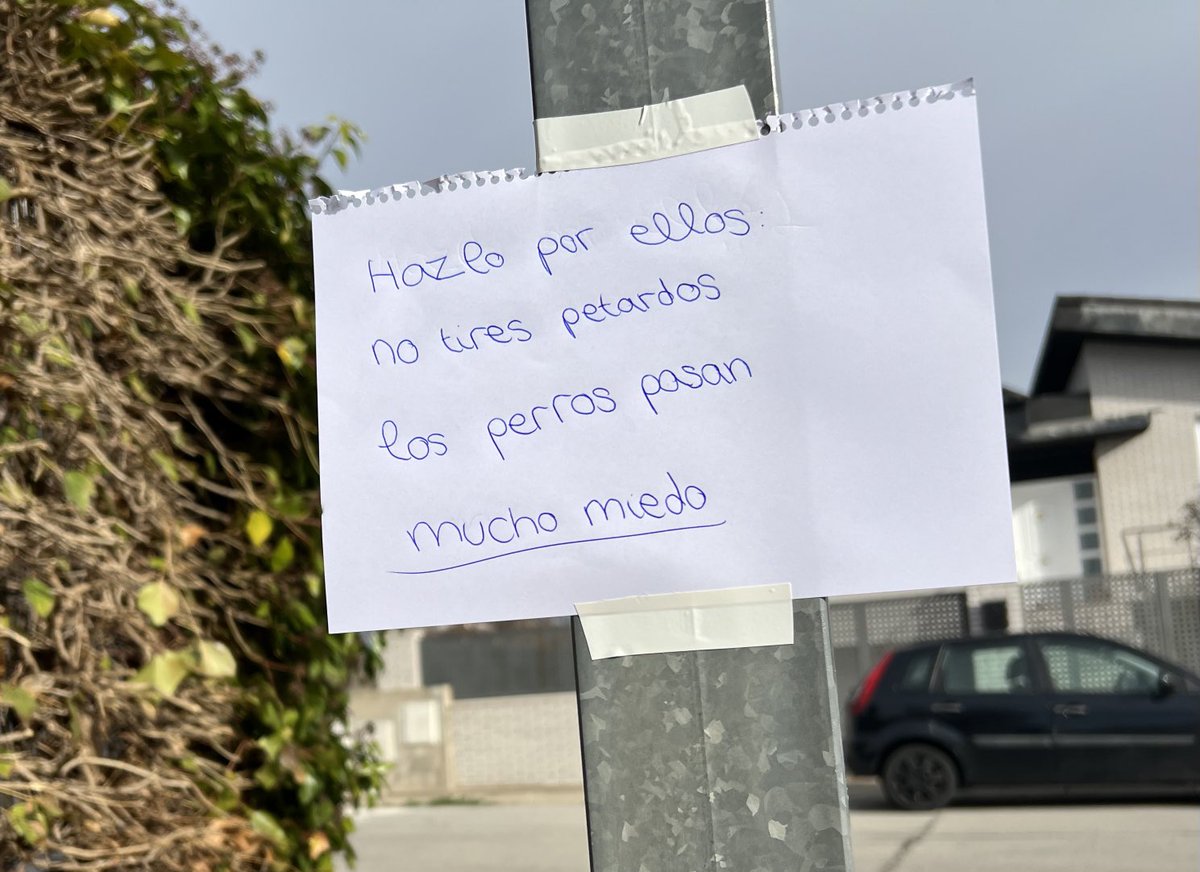 Hazlo por ellos:
no tires petardos
los perros pasan
mucho miedo